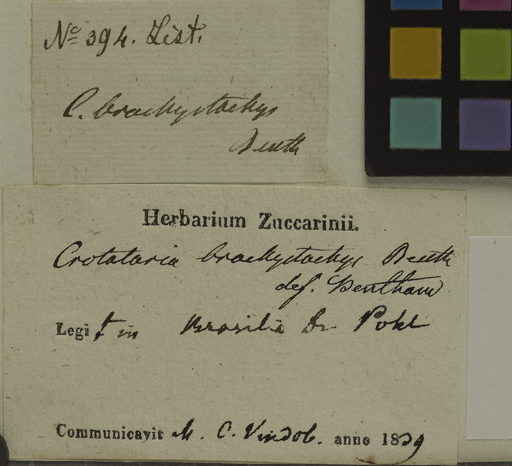 No 394. List.
C. brachystachys
Benth
Herbarium Zuccarinii.
Crotalaria brachystachys Benth
def. Bentham
Legit in Brasilia Dr. Pohl
Communicavit M. C. Vindob. anno 1839